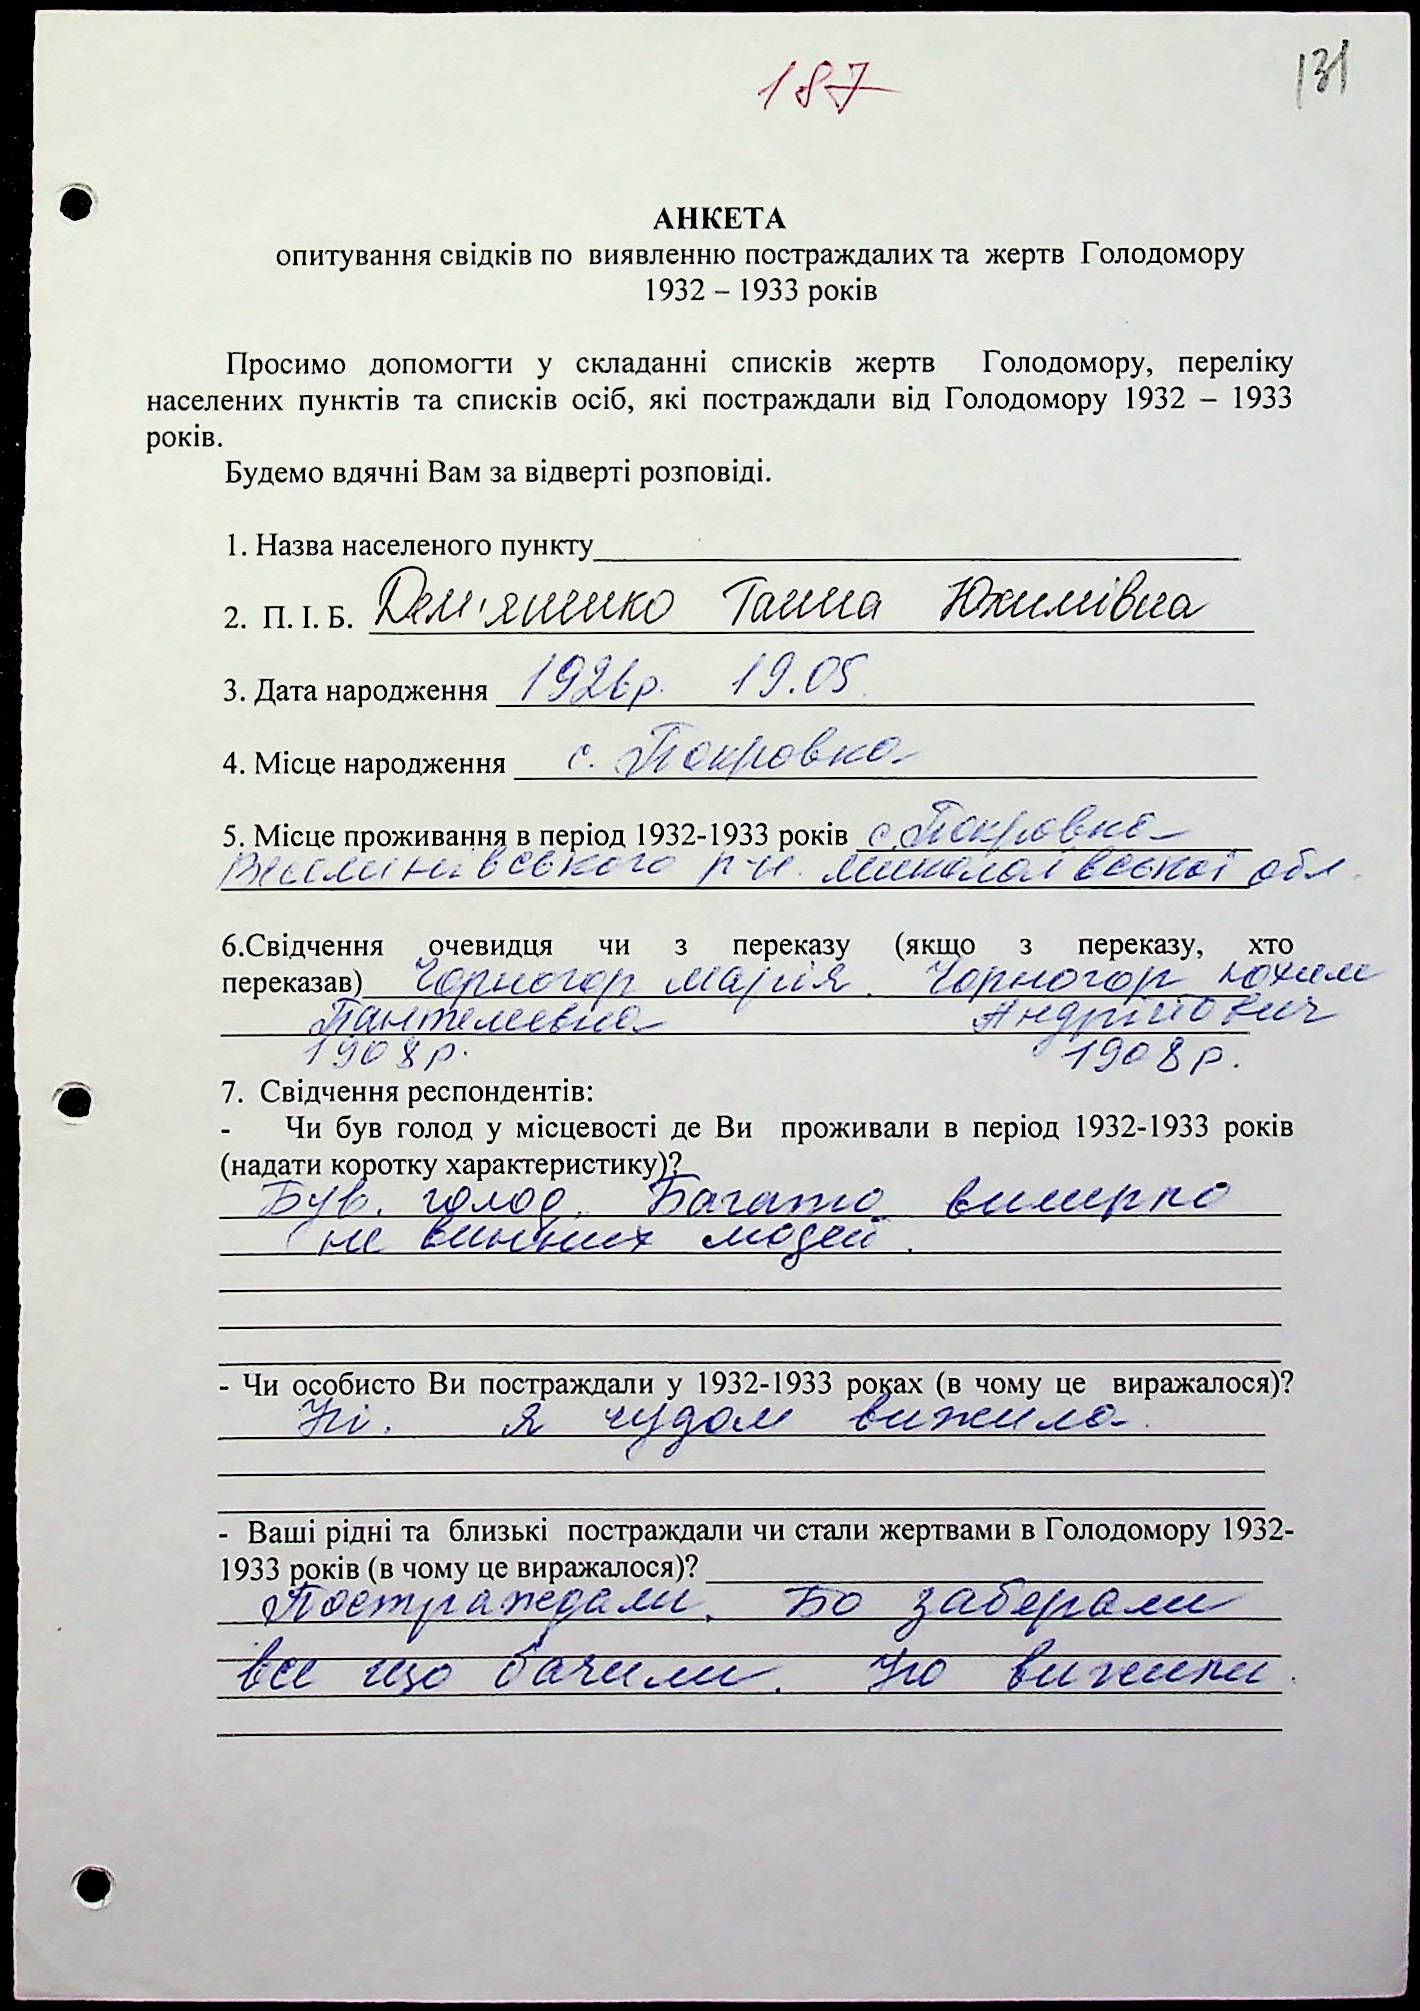 187
131
АНКЕТА
опитування свідків по виявленню постраждалих та жертв Голодомору
1932 – 1933 років
Просимо допомогти у складанні списків жертв Голодомору, переліку
населених пунктів та списків осіб, які постраждали від Голодомору 1932 – 1933
років.
Будемо вдячні Вам за відверті розповіді.
1. Назва населеного пункту
2. П. І. Б. Дем'яненко Ганна Юхимівна
3. Дата народження 1926р. 19.05
4. Місце народження с. Покровка
5. Місце проживання в період 1932-1933 років с. Покровка
Веселинівського р-н. Миколаївської обл.
6.Свідчення очевидця чи з переказу (якщо з переказу, хто
переказав) Чорногор Марія. Чорногор Юхим
Пантелеевна Андрійович
1908 р. 1908 р.
7. Свідчення респондентів:
- Чи був голод у місцевості де Ви проживали в період 1932-1933 років
(надати коротку характеристику)?
Був. голод. Багато вимерло
не винних людей.
- Чи особисто Ви постраждали у 1932-1933 роках (в чому це виражалося)?
Ні. я чудом вижила.
- Ваші рідні та близькі постраждали чи стали жертвами в Голодомору 1932-
1933 років (в чому це виражалося)?
Постраждали. Бо заберали
все що бачили. Но вижили.